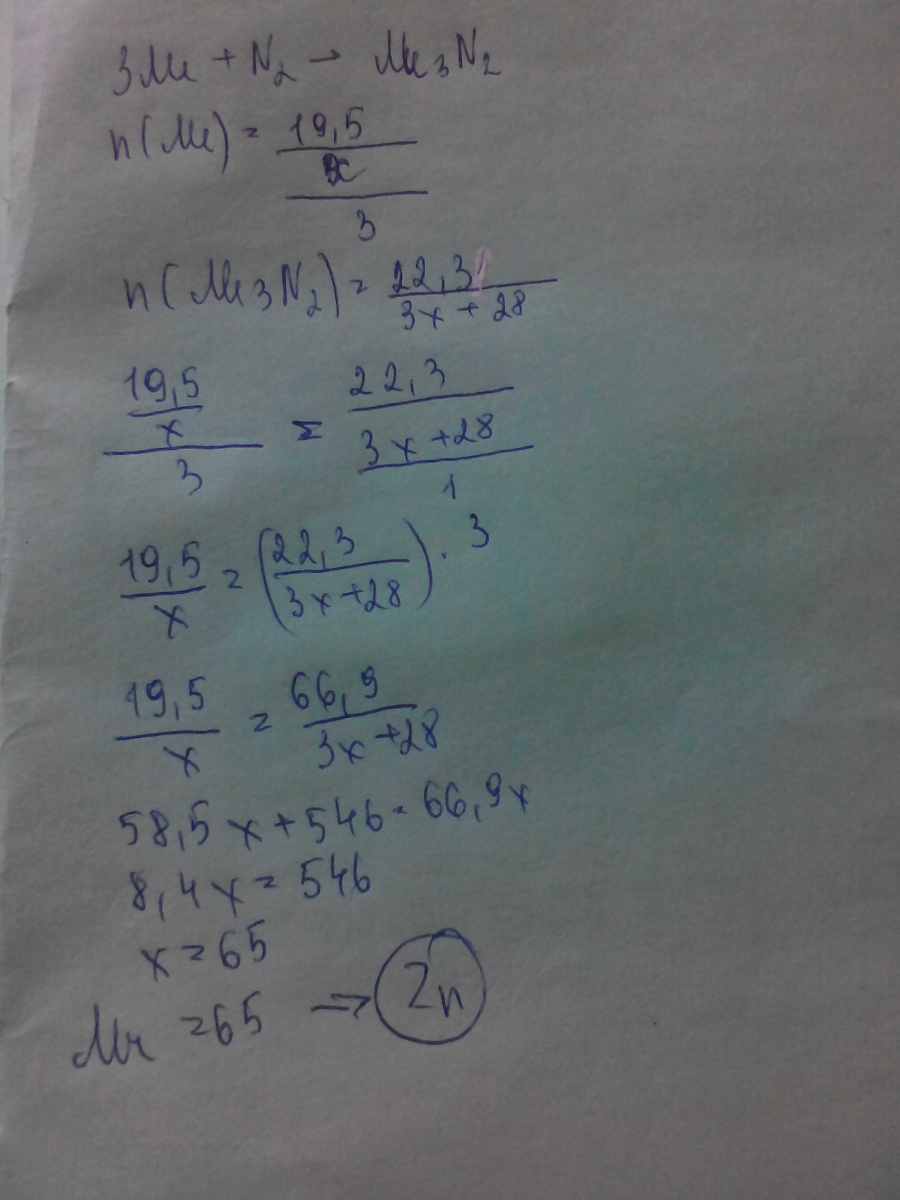 3Me + N2 → Me3N2
n(Me) = 19,5/x/3
n(Me3N2) = 22,3/3x + 28
19,5/x/3 = 22,3/3x + 28/1
19,5/x = (22,3/3x + 28) · 3
19,5/x = 66,9/3x + 28
58,5x + 546 = 66,9x
8,4x = 546
x = 65
Mr = 65 => Zn